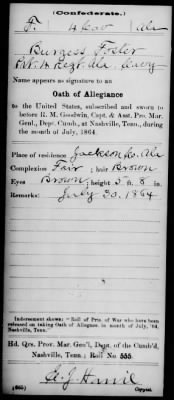 (Confederate.)
F. 4 Cav Ala
Burgess Foster
Pvt. 4 Regt. Ala. Cavy
Name appears as signature to an
Oath of Allegiance
to the United States, subscribed and sworn to
before R. M. Goodwin, Capt. & Asst. Pro. Mar.
Genl., Dept. Cumb., at Nashville, Tenn., during
the month of July, 1864.
Place of residence Jackson Co. Ala
Complexion Fair; hair Brown
Eyes Brown; height 5 ft. 8 in.
Remarks: July 30. 1864
Indorsement shows: "Roll of Pris. of War who have been
released on taking Oath of Allegiance in month of July, '64,
Nashville, Tenn."
Hd. Qrs. Provr. Mar. Gen'l, Dept. of the Cumb'd,
Nashville, Tenn.; Roll No. 555.
(665) Copyist.